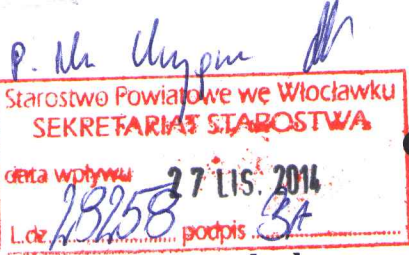 Starostwo Powiatowe we Włocławku
SEKRETARIAT STAROSTWA
data wpływu 27 LIS. 2014
L.dz. 29258 podpis